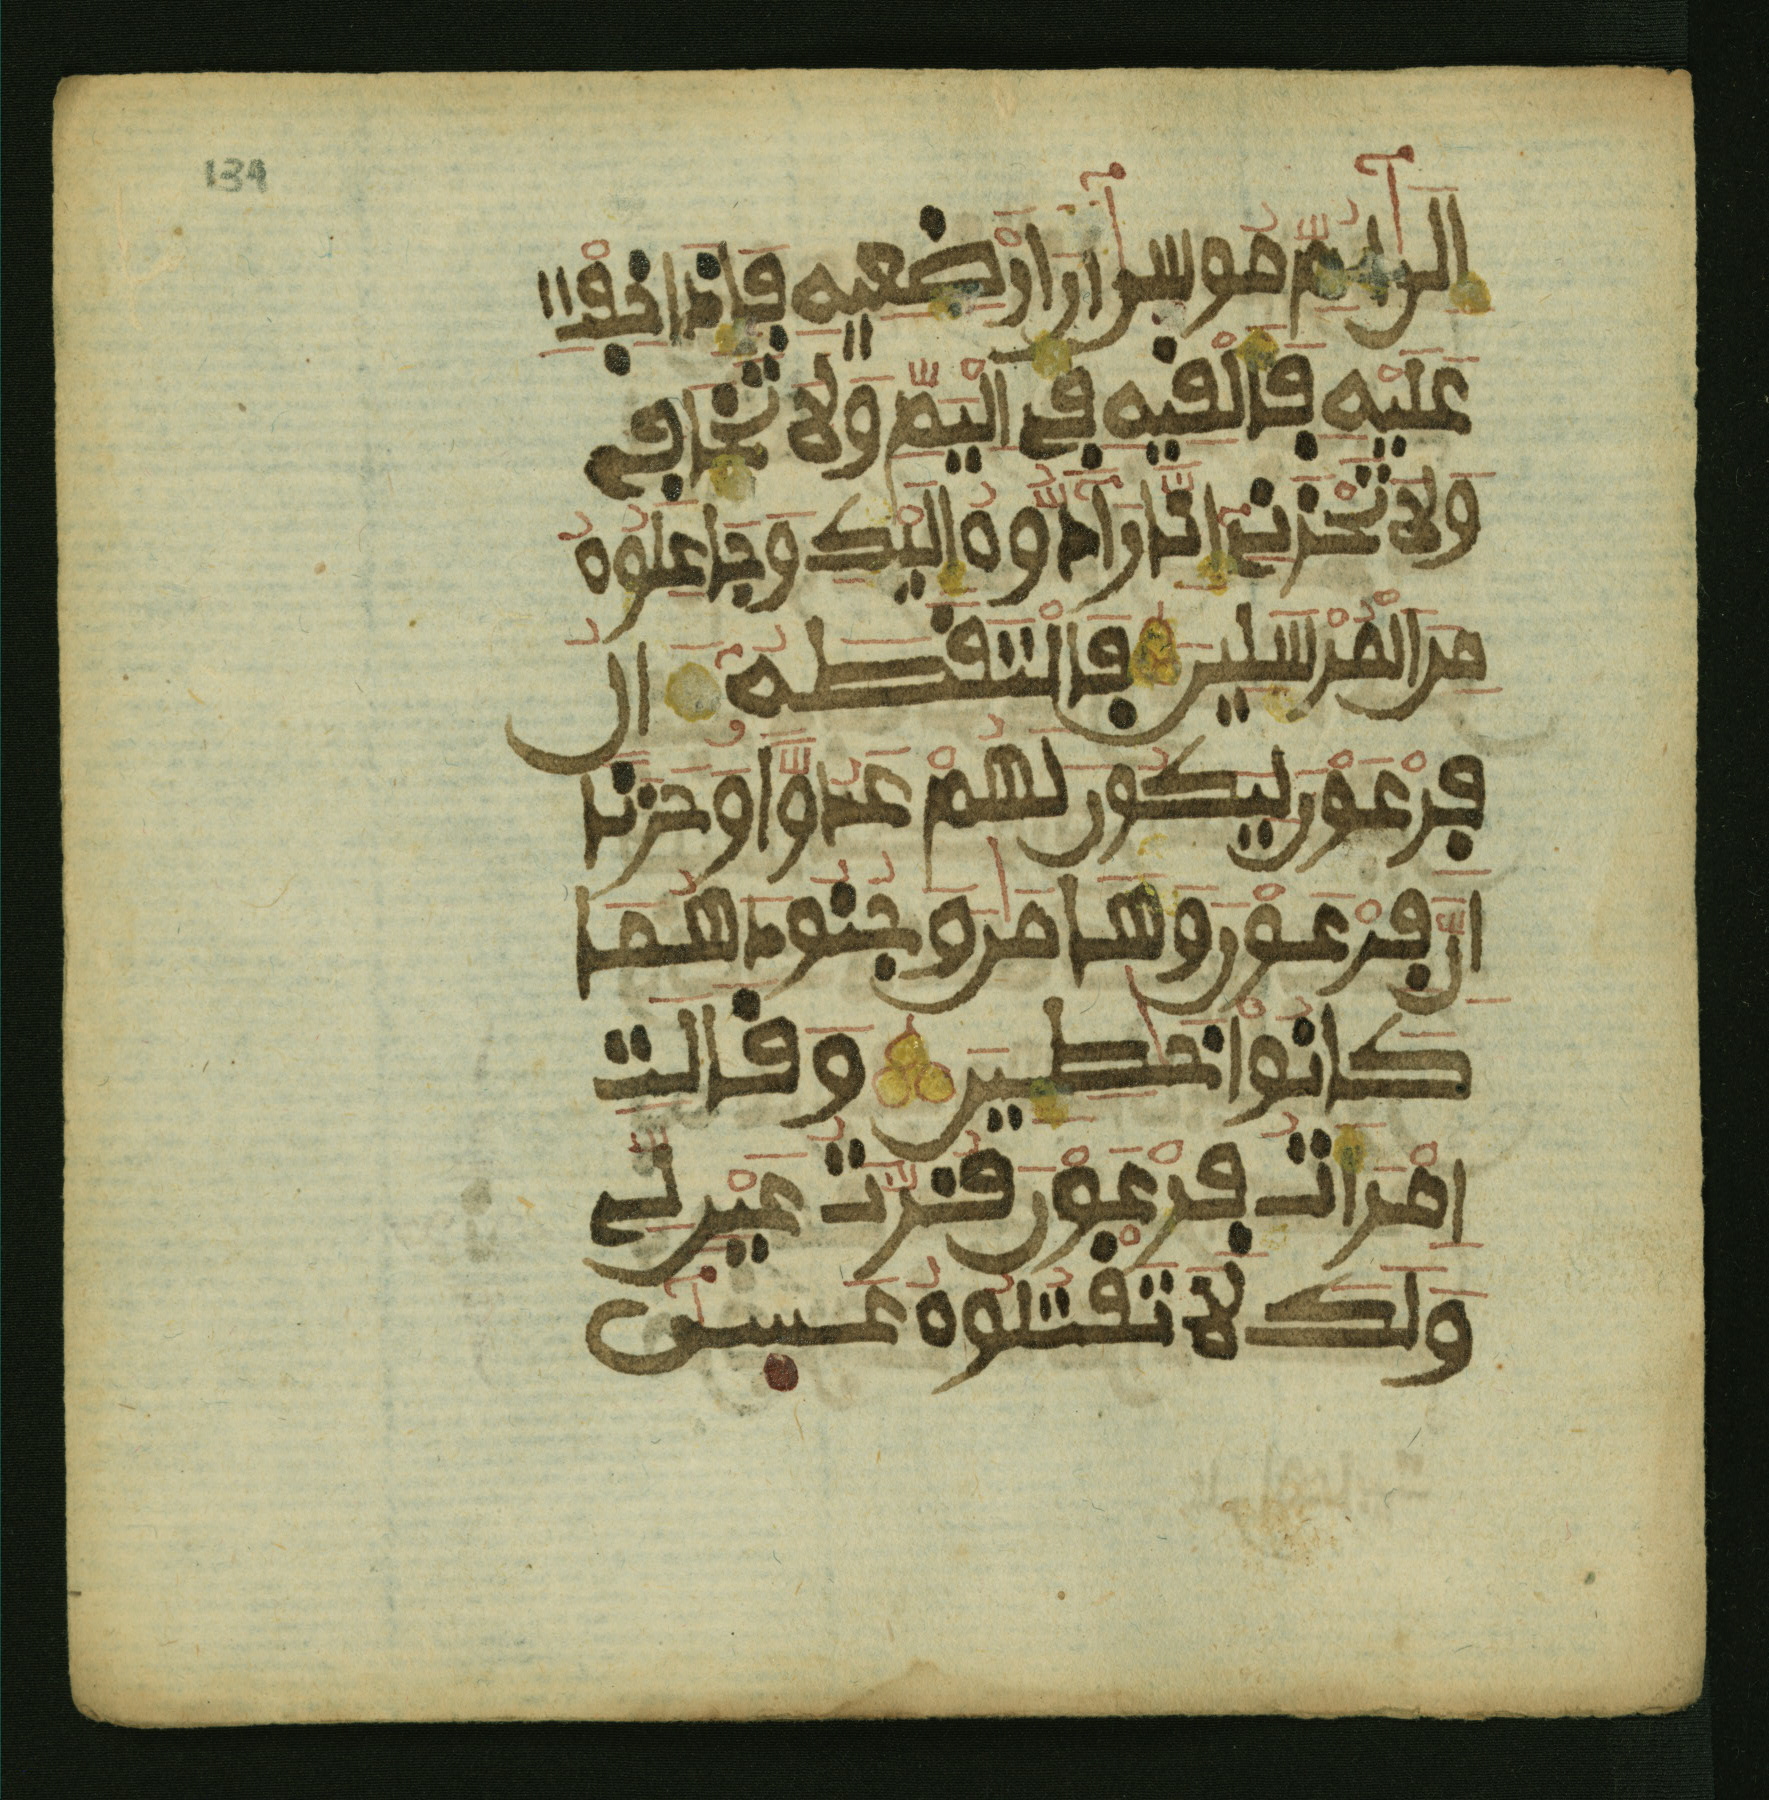 134
الى أم موسى أن أرضعيه فإذا خفت
عليه فألقيه في اليم ولا تخافي
ولا تحزني إنا رآدوه إليك وجاعلوه
من المرسلين فالتقطه ال
فرعون ليكون لهم عدوا وحزنا
إن فرعون وهامن وجنودهما
كانوا خطين وقالت
امرأت فرعون قرت عين لي
ولك لا تقتلوه عسى